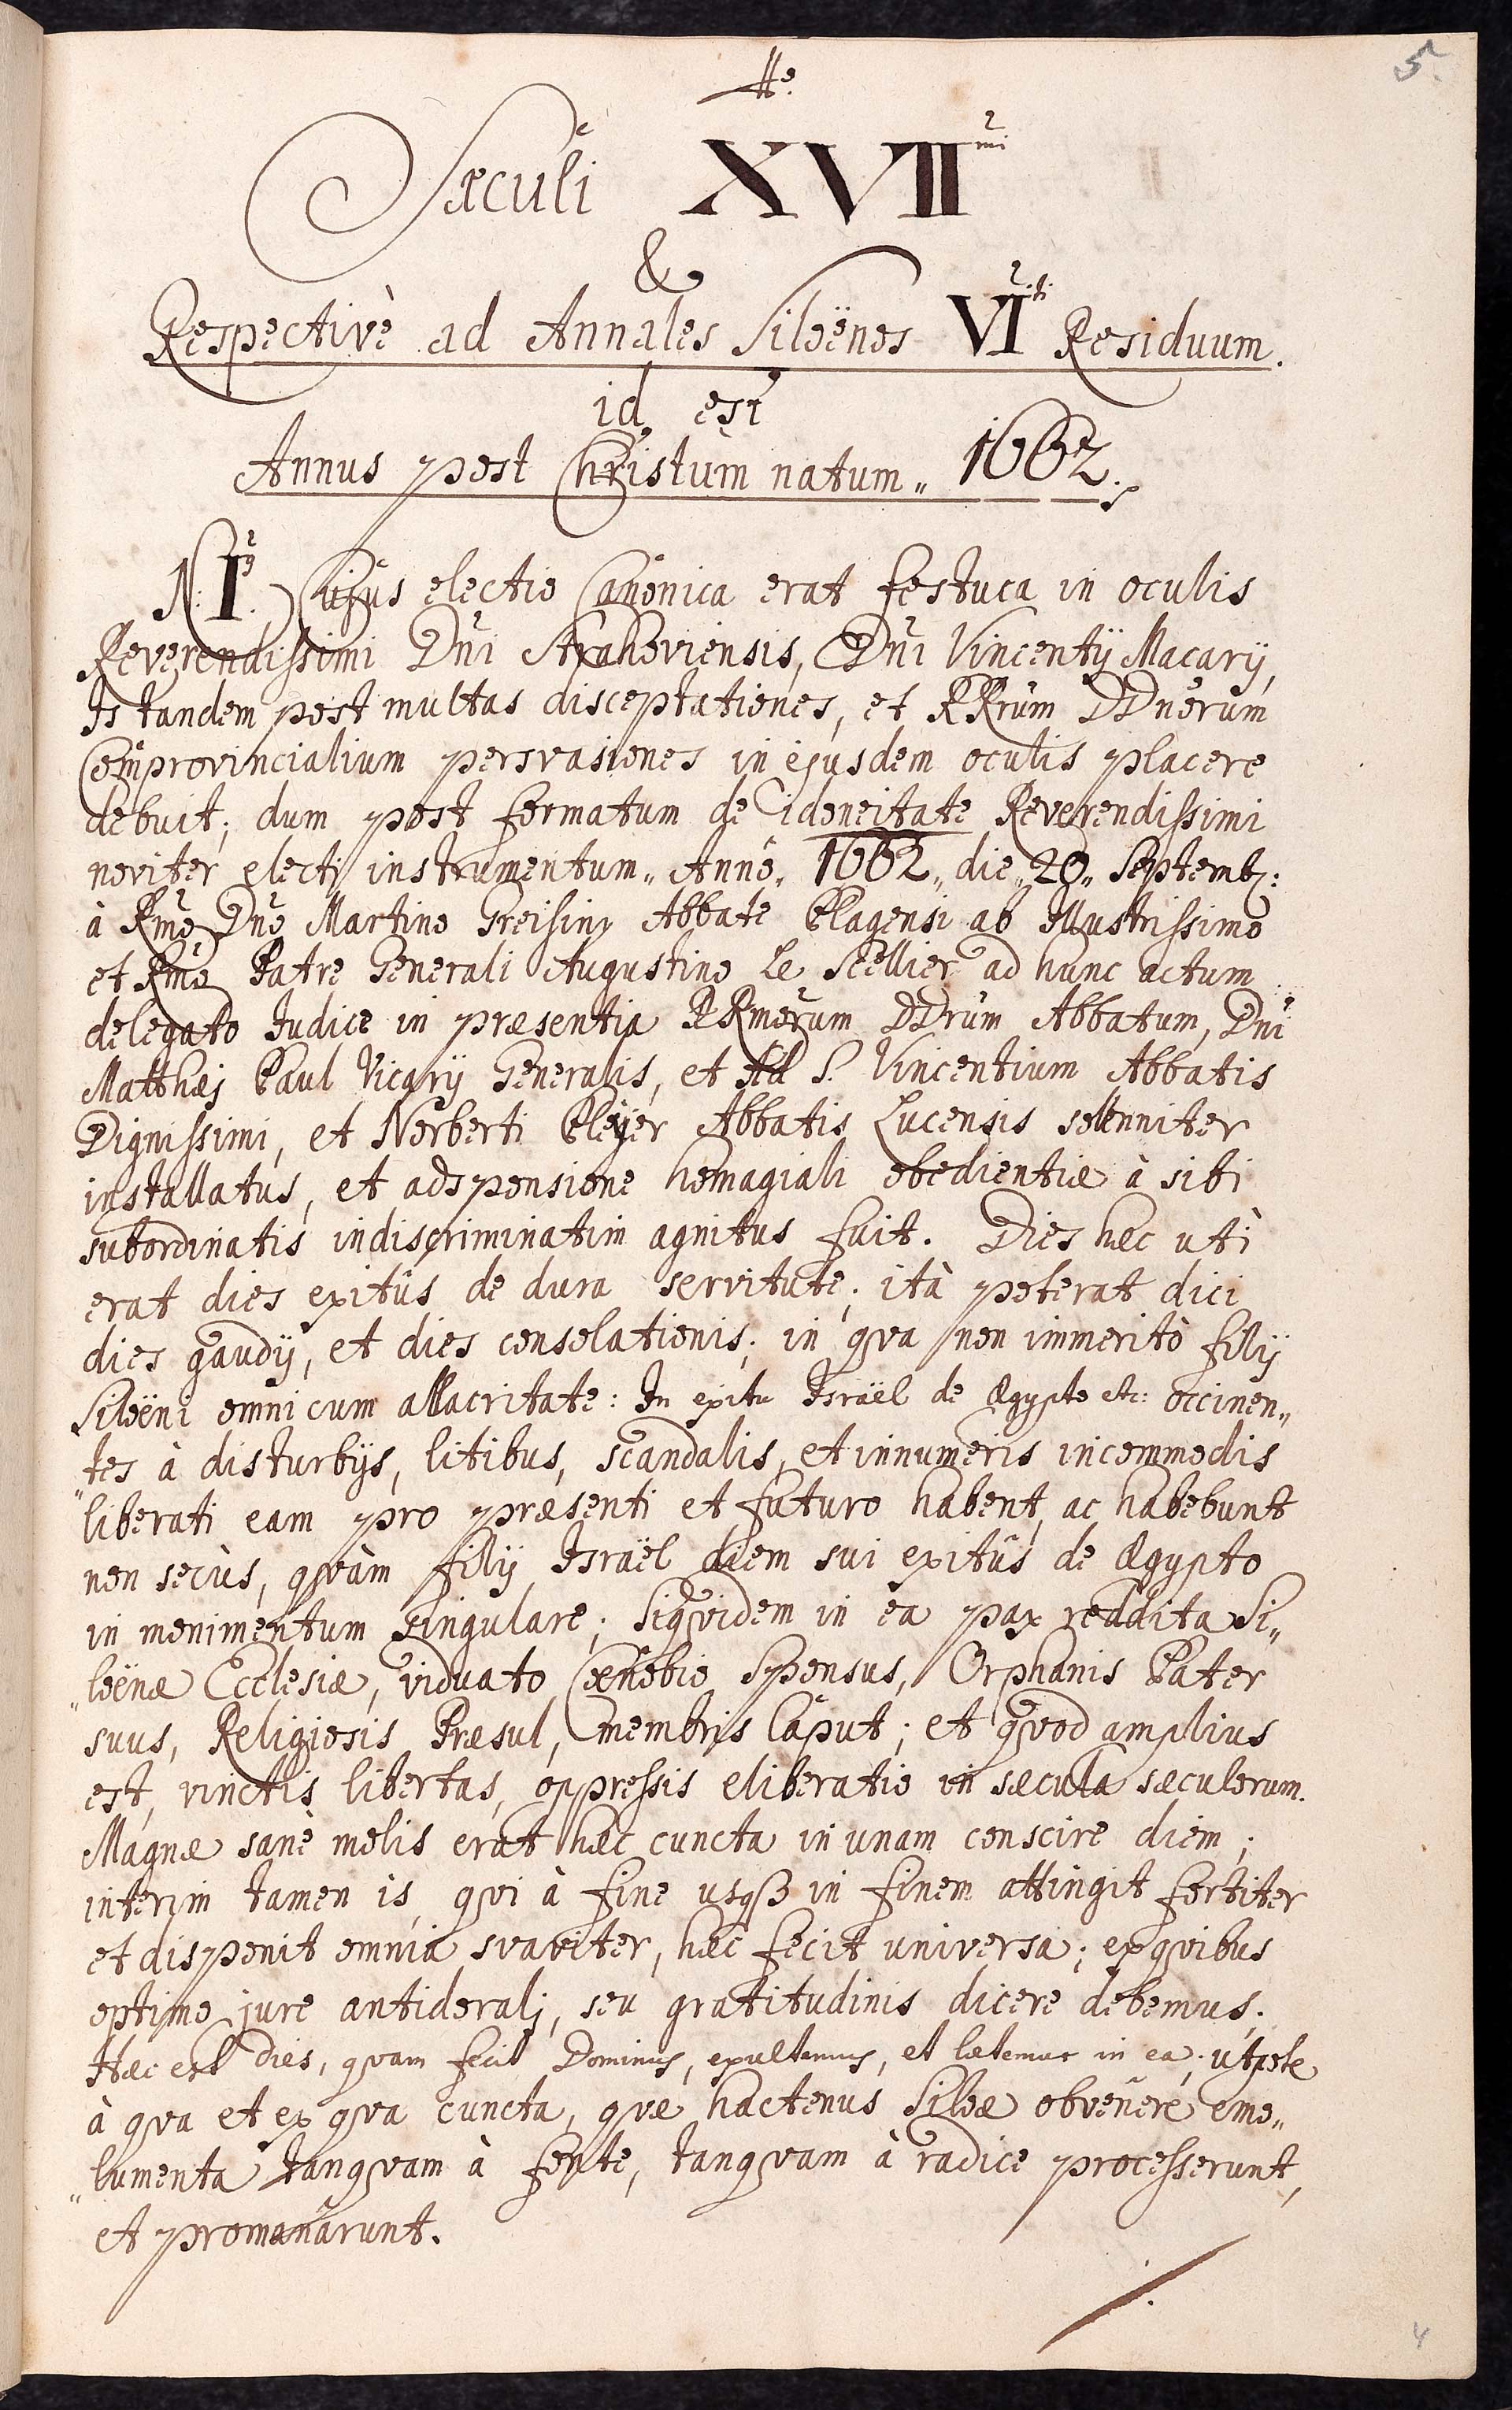 5.
Sæculi XVII mi
&
Respectivè ad Annales Siloënos VI ti Residuum.
id est
Annus post Christum natum„ 1662.
N: I. Cujus electio Canonica erat festuca in oculis
Reverendissimi Dni Strahoviensis, Dni Vincentij Macarij,
Is tandem post multas disceptationes, et RRrum DDnorum
Comprovincialium persvasiones in ejusdem oculis placere
debuit; dum post formatum de idoneitate Reverendissimi
noviter electi instrumentum„ Anno„ 1662„ die„ 20„ Septemb:
à Rmo Dno Martino Greising Abbate Plagensi ab Illustrissimo
et Rmo Patre Generali Augustino Le Scellier ad hunc actum
delegato Iudice in præsentia RRmorum DDrum Abbatum, Dni
Matthæj Paul Vicarij Generalis, et Ad S. Vincentium Abbatis
Dignissimi, et Norberti Pleÿer Abbatis Lucensis solenniter
installatus, et adsponsione homagiali obedientiæ à sibi
subordinatis indiscriminatim agnitus fuit. Dies hæc uti
erat dies exitûs de dura servitute; ità poterat dici
dies gaudij, et dies consolationis; in qva non immeritò filij
Siloëni omni cum allacritate: In exitu Israël de Ægypto etc: occinen„
„tes à disturbijs, litibus, scandalis, et innumeris incommodis
liberati eam pro præsenti et futuro habent, ac habebunt
non secùs, qvàm filij Israël diem sui exitûs de Ægypto
in monimentum singulare; siqvidem in ea pax reddita Si„
„loënæ Ecclesiæ, viduato Cænobio Sponsus, Orphanis Pater
suus, Religiosis Præsul, membris Caput; et qvod amplius
est, vinctis libertas, oppressis eliberatio in sæcula sæculorum.
Magnæ sanè molis erat hæc cuncta in unam conscire diem;
interim tamen is, qvi à fine usqß in finem attingit fortiter
et disponit omnia svaviter, hæc fecit universa; exqvibus
optimo jure antideralj, seu gratitudinis dicere debemus;
Hæc est dies, qvam fecit Dominus, exultemus, et lætemur in ea; utpote
à qva et ex qva cuncta, qvæ hactenus Siloæ obvenêre emo„
„lumenta tanqvam à fonte, tanqvam à radice processerunt,
et promanârunt.
4